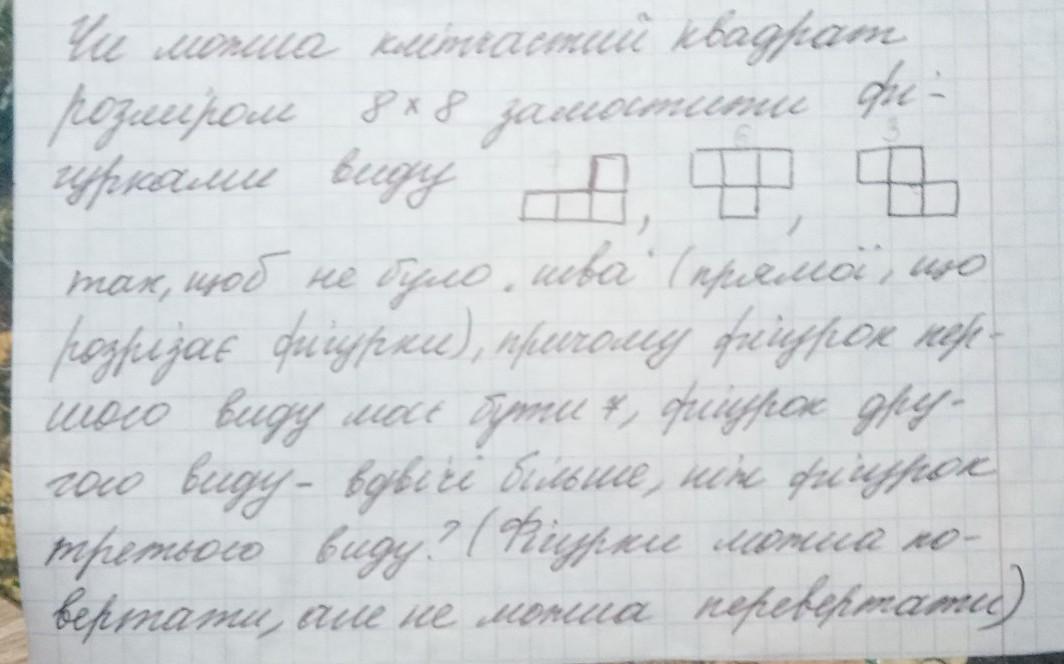 Чи можна клітчастий квадрат
розміром 8×8 замостити фі-
6 3
гурками виду , ,
так, щоб не було шва (прямої, що
розрізає фігурки), причому фігурок пер-
шого виду має бути 7, фігурок дру-
гого виду - вдвічі більше, ніж фігурок
третього виду? (Фігурки можна по-
вертати, але не можна перевертати)